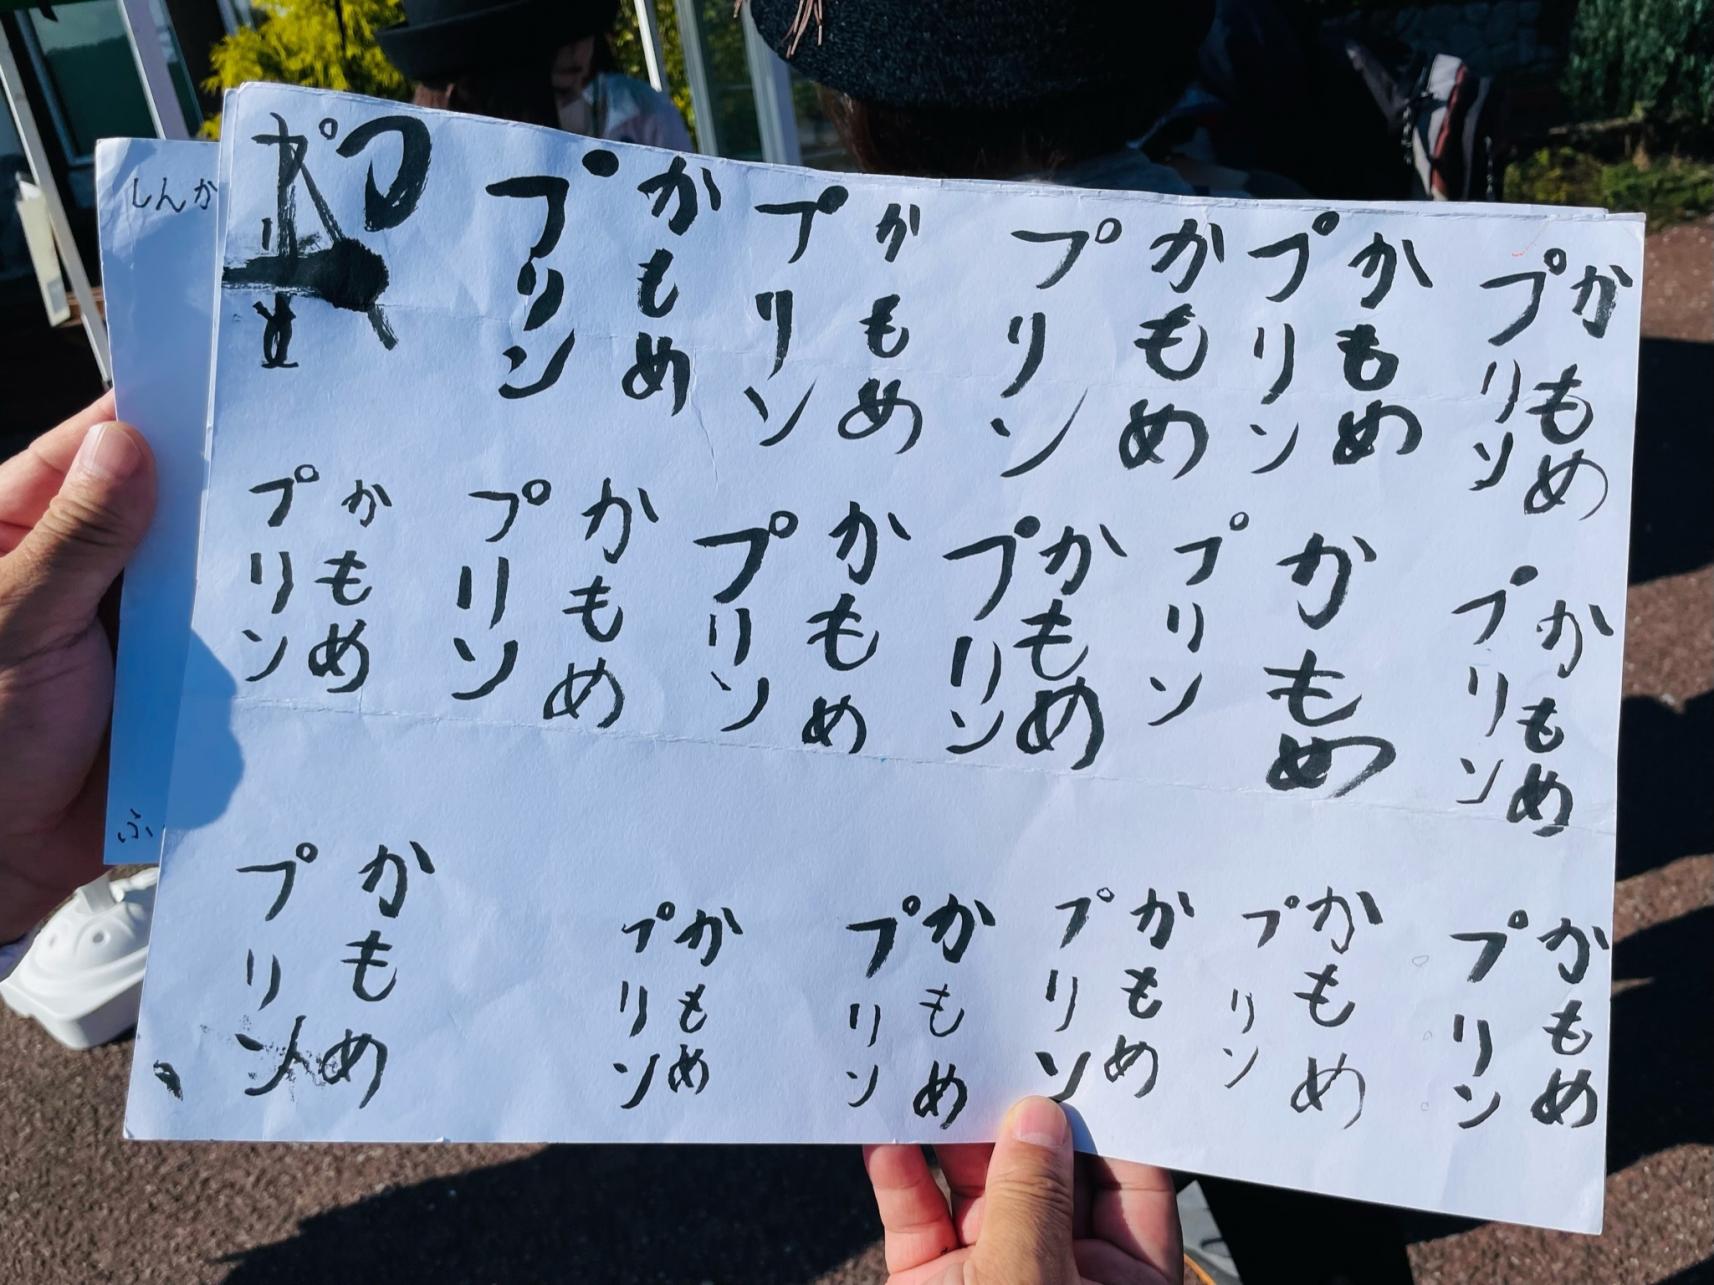 かもめ
プリン
かもめ
プリン
かもめ
プリン
かもめ
プリン
かもめ
プリン
かもめ
プリン
かもめ
プリン
かもめ
プリン
かもめ
プリン
かもめ
プリン
かもめ
プリン
かもめ
プリン
かもめ
プリン
かもめ
プリン
かもめ
プリン
かもめ
プリン
かもめ
プリン
しんか
ぷ